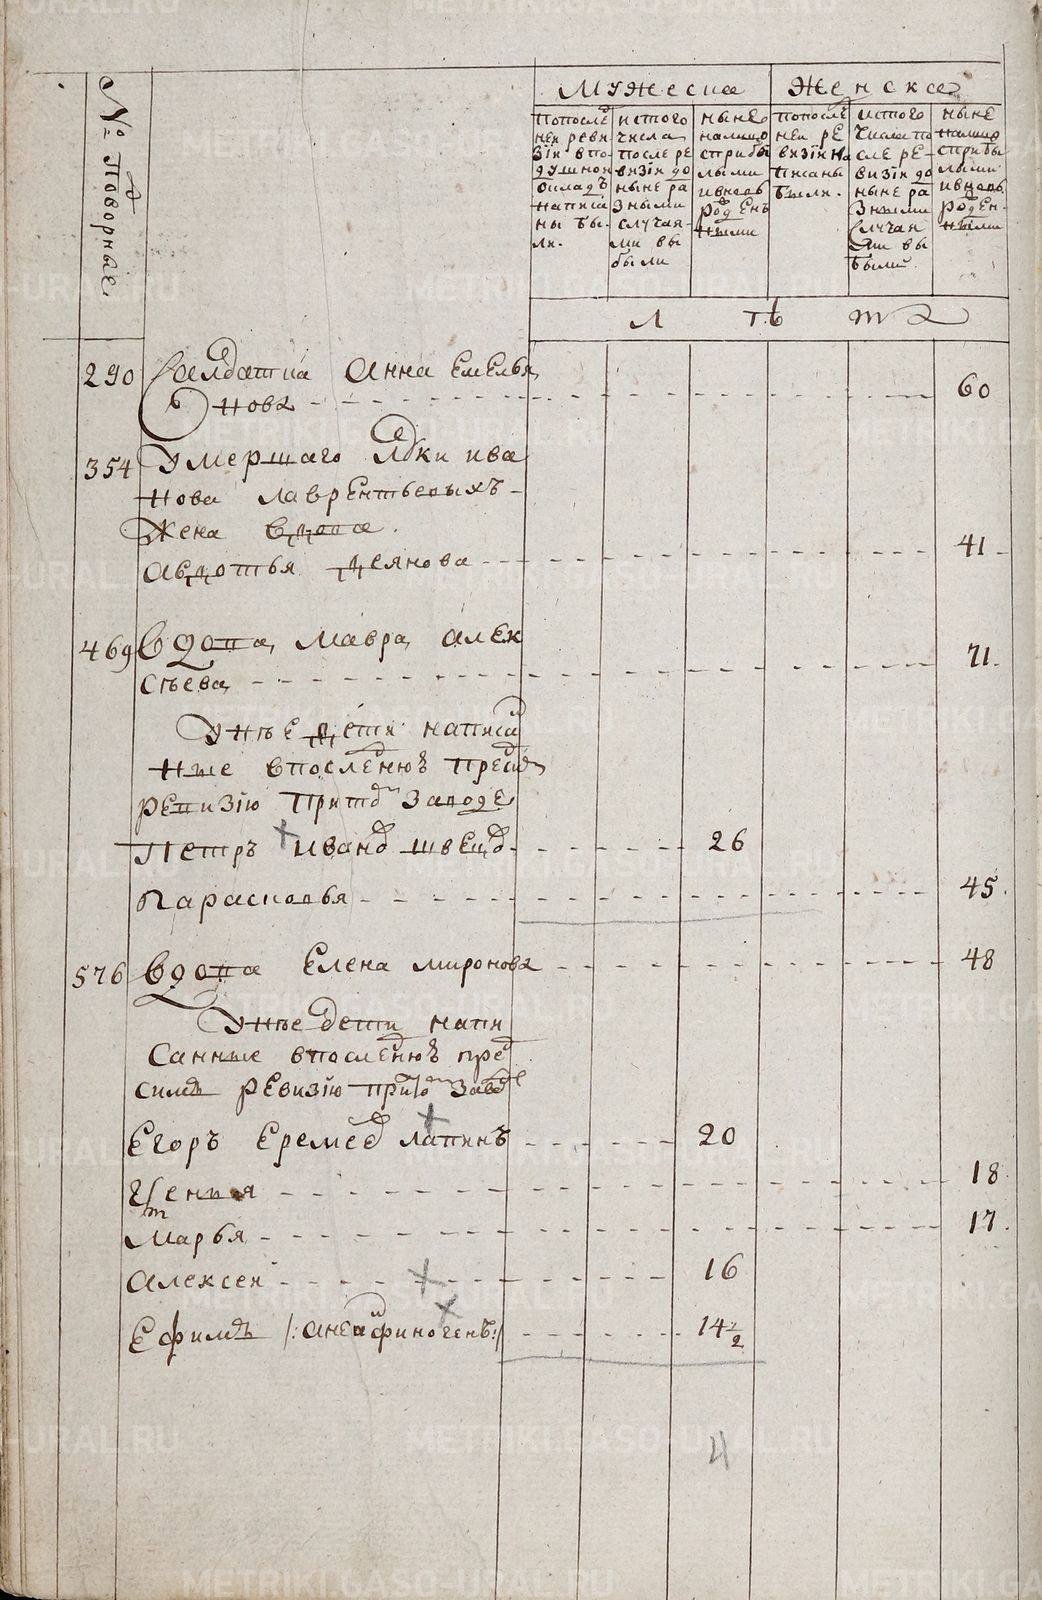 № Подворные.
Мужеска
Женска
Попосле
дней реви
зіи впо
душной
окладъ
написа
ны бы
ли.
истого
числа
после ре
визіи до
ныне ра
зными
случая
ми вы
были
ныне
налицо
сприбы
лыми
ивновь
рожденъ
ными
Попосле
ней ре
визіи на
писаны
были.
истого
числа по
сле ре-
визіи до
ныне ра
зными
случая
ми вы
были.
ныне
налицо
стрибы
лыми
ивновь
рожден-
ными
лѣта
290 Салдатка Анна Емелья
нова 60
354 Умершаго Ивана
нова лаврентьевыхъ
Жена вдова.
Авдотья Деянова 41
469 Вдова Мавра Алек
сѣева 71.
Унѣе дети написа
ные впоследнюю пред
ревизію при Заводе
Петръ Иванов Швецов 26
Парасковья 45.
576 Вдова Елена Миронова 48
Унѣе дети напи
санные впоследнюю пред
симъ ревизію при Заводе
Егоръ Еремеев Лапинъ 20
Ксенья 18
Марья 17.
Алексей 16
Ефимъ /: анеафиногенъ:/ 14½
4
METRIKI.GASO-URAL.RU